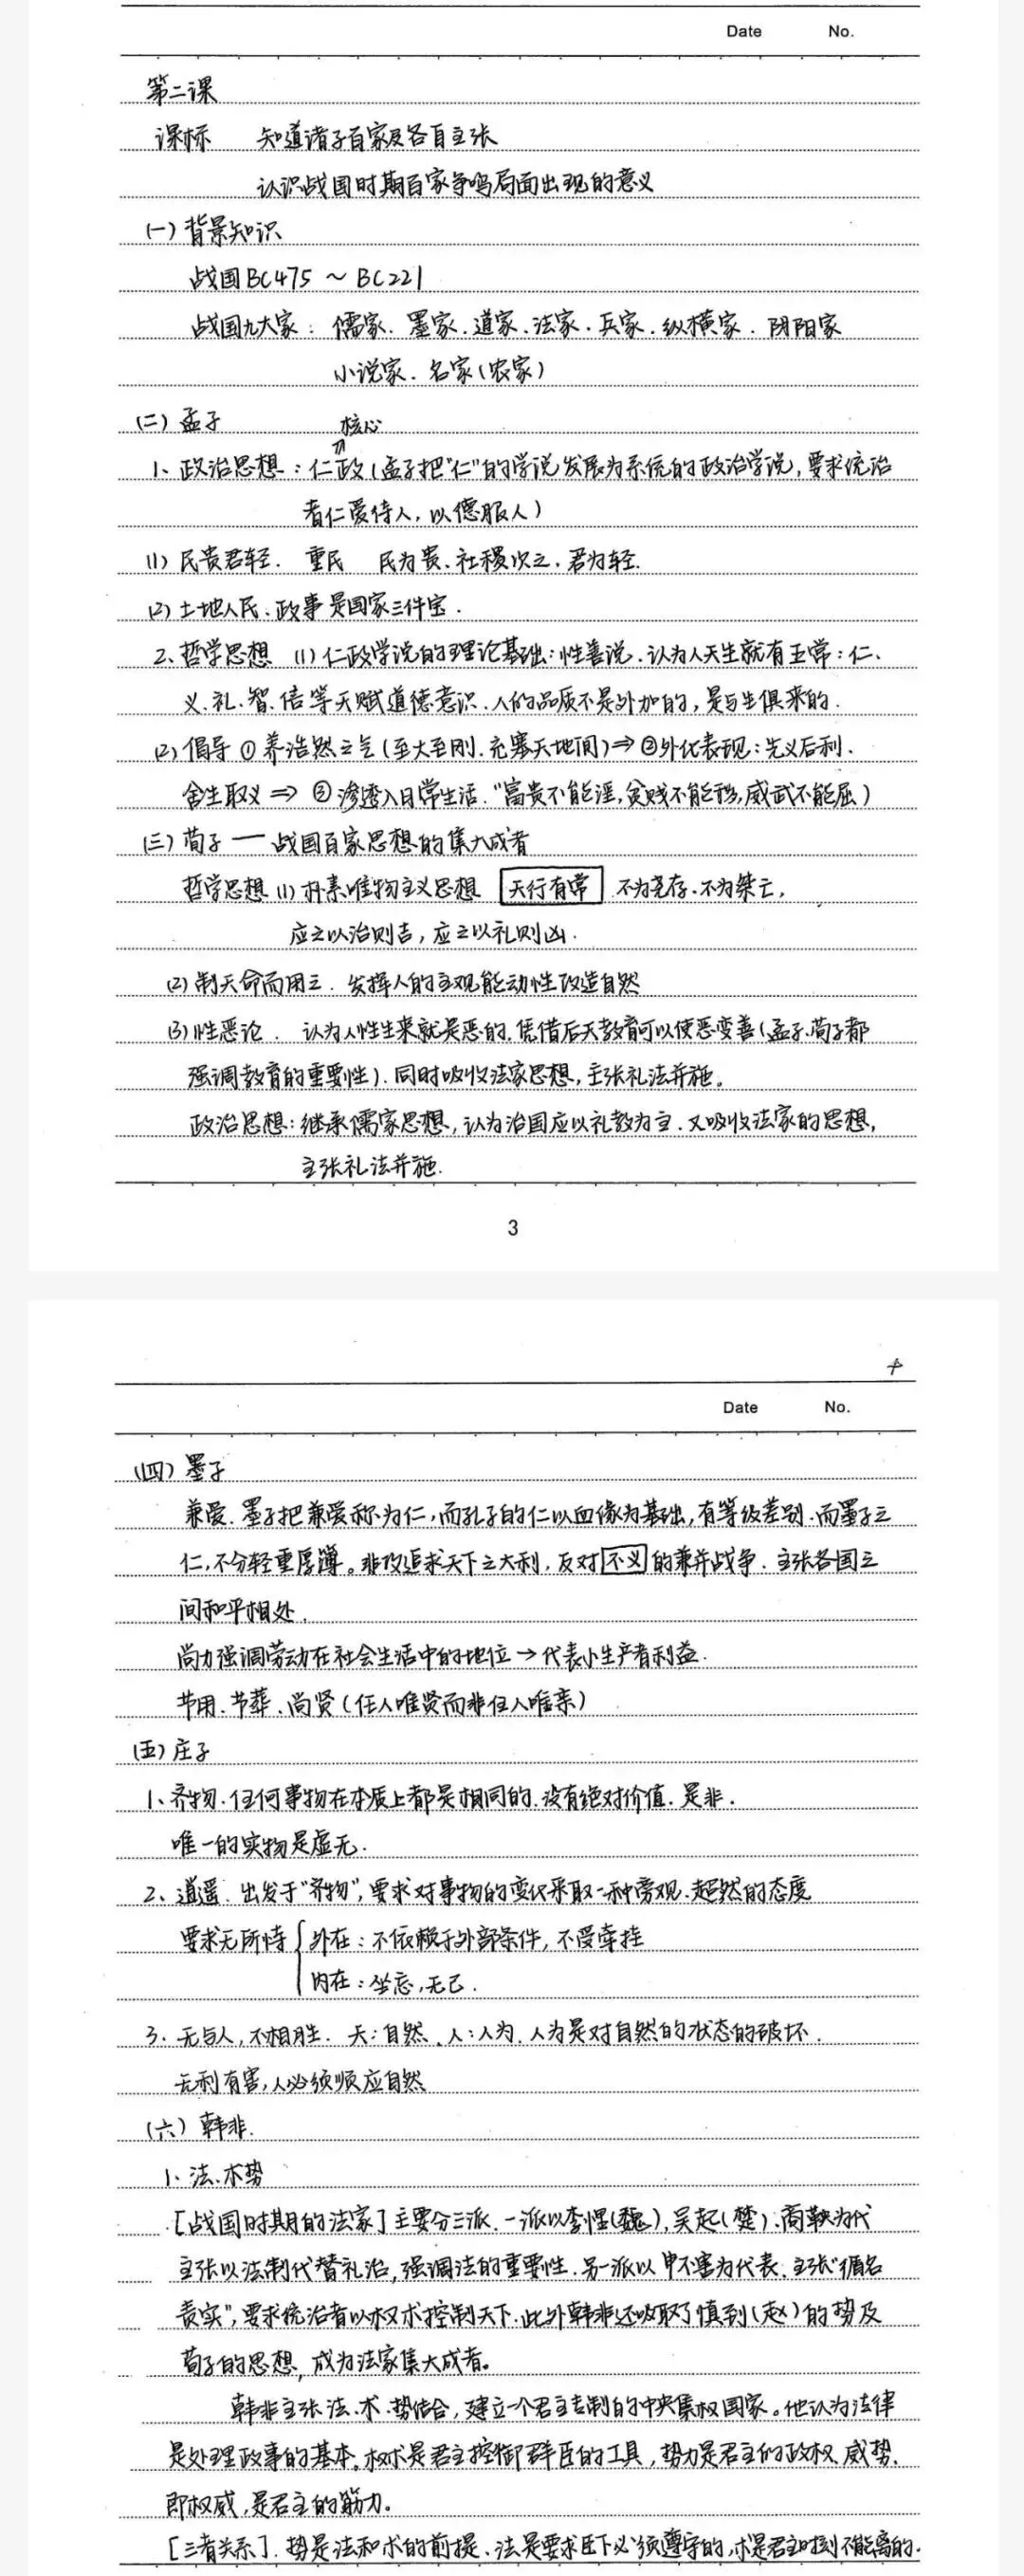 Date No.
第二课
课标 知道诸子百家及各自主张
认识战国时期百家争鸣局面出现的意义
(一) 背景知识
战国BC475 ~ BC221
战国九大家: 儒家、墨家、道家、法家、兵家、纵横家、阴阳家
小说家、名家(农家)
(二) 孟子 核心
1、政治思想:仁政(孟子把"仁"的学说发展为系统的政治学说,要求统治
者仁爱待人,以德服人)
(1) 民贵君轻. 重民 民为贵、社稷次之、君为轻.
(2) 土地人民、政事是国家三件宝.
2、哲学思想 (1) 仁政学说的理论基础:性善说.认为人天生就有五常:仁、
义、礼、智、信等天赋道德意识.人的品质不是外加的,是与生俱来的.
(2) 倡导 ①养浩然之气(至大至刚.充塞天地间)⇒ ②外化表现:先义后利.
舍生取义 ⇒ ③渗透入日常生活."富贵不能淫,贫贱不能移,威武不能屈)
(三) 荀子 — 战国百家思想的集大成者
哲学思想 (1) 朴素唯物主义思想 天行有常 不为尧存.不为桀亡,
应之以治则吉,应之以礼则凶.
(2) 制天命而用之. 发挥人的主观能动性改造自然
(3) 性恶论. 认为人性生来就是恶的.凭借后天教育可以使恶变善(孟子、荀子都
强调教育的重要性).同时吸收法家思想,主张礼法并施。
政治思想:继承儒家思想,认为治国应以礼教为主.又吸收法家的思想,
主张礼法并施.
3
Date No.
(四) 墨子
兼爱.墨子把兼爱称为仁,而孔子的仁以血缘为基础,有等级差别.而墨子之
仁,不分轻重厚薄。非攻追求天下之大利,反对不义的兼并战争.主张各国之
间和平相处.
尚力强调劳动在社会生活中的地位→代表小生产者利益.
节用、节葬、尚贤(任人唯贤而非任人唯亲)
(五) 庄子
1、齐物.任何事物在本质上都是相同的.没有绝对价值.是非.
唯一的实物是虚无.
2、逍遥.出发于"齐物",要求对事物的变化采取一种旁观、超然的态度
要求无所恃 外在:不依赖于外部条件,不受牵挂
内在:坐忘,无己.
3、无与人,不相胜. 天:自然.人:人为.人为是对自然的状态的破坏.
无利有害,人必须顺应自然
(六) 韩非.
1、法、术、势
[战国时期的法家]主要分三派.一派以李悝(魏),吴起(楚)、商鞅为代
主张以法制代替礼治,强调法的重要性.另一派以申不害为代表.主张"循名
责实",要求统治者以权术控制天下.此外韩非还吸取了慎到(赵)的势及
荀子的思想,成为法家集大成者。
韩非主张法、术、势结合,建立一个君主专制的中央集权国家。他认为法律
是处理政事的基本.权术是君主控御群臣的工具,势力是君主的政权、威势.
即权威,是君主的筋力。
[三者关系].势是法和术的前提、法是要求臣下必须遵守的,术是君主时刻不能离的.